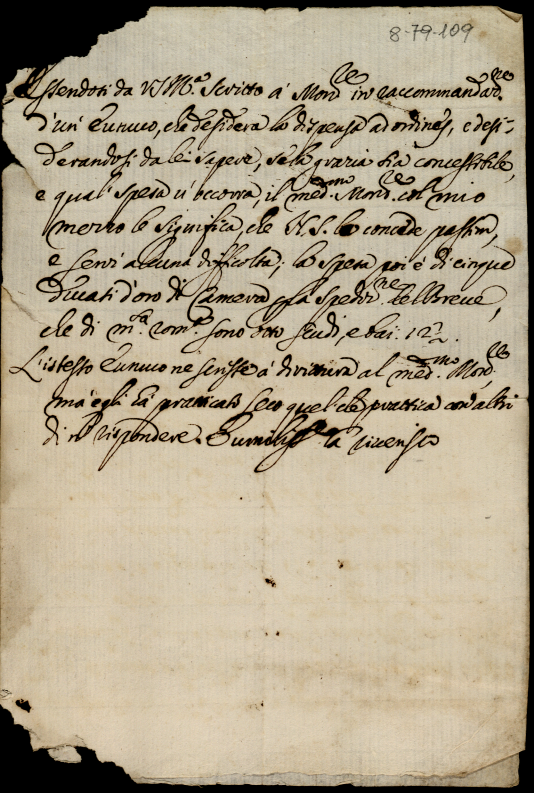 8-79-109
Essendosi da VS M.ª scritto à Mons.re in raccommandaz.ne
d'un' Eunuco, che desidera la dispensa ad ordines, e desi-
derandosi da lei sapere, se la grazia sia concessibile,
e qual' spesa vi occorra, il med.mo Mons.re col mio
mezzo le significa, che N. S. la concede passim,
e senz' alcuna difficoltà; la spesa poi è di cinque
Ducati d'oro di Camera p la spediz.ne del Breve,
che di m.ta rom.a sono otto scudi, e bai: 12½.
L'istesso Eunuco ne scrisse à dirittura al med.mo Mons.re
mà egli hà pratticato seco quel che prattica con altri
di nō rispondere. Humiliss.te la riverisco